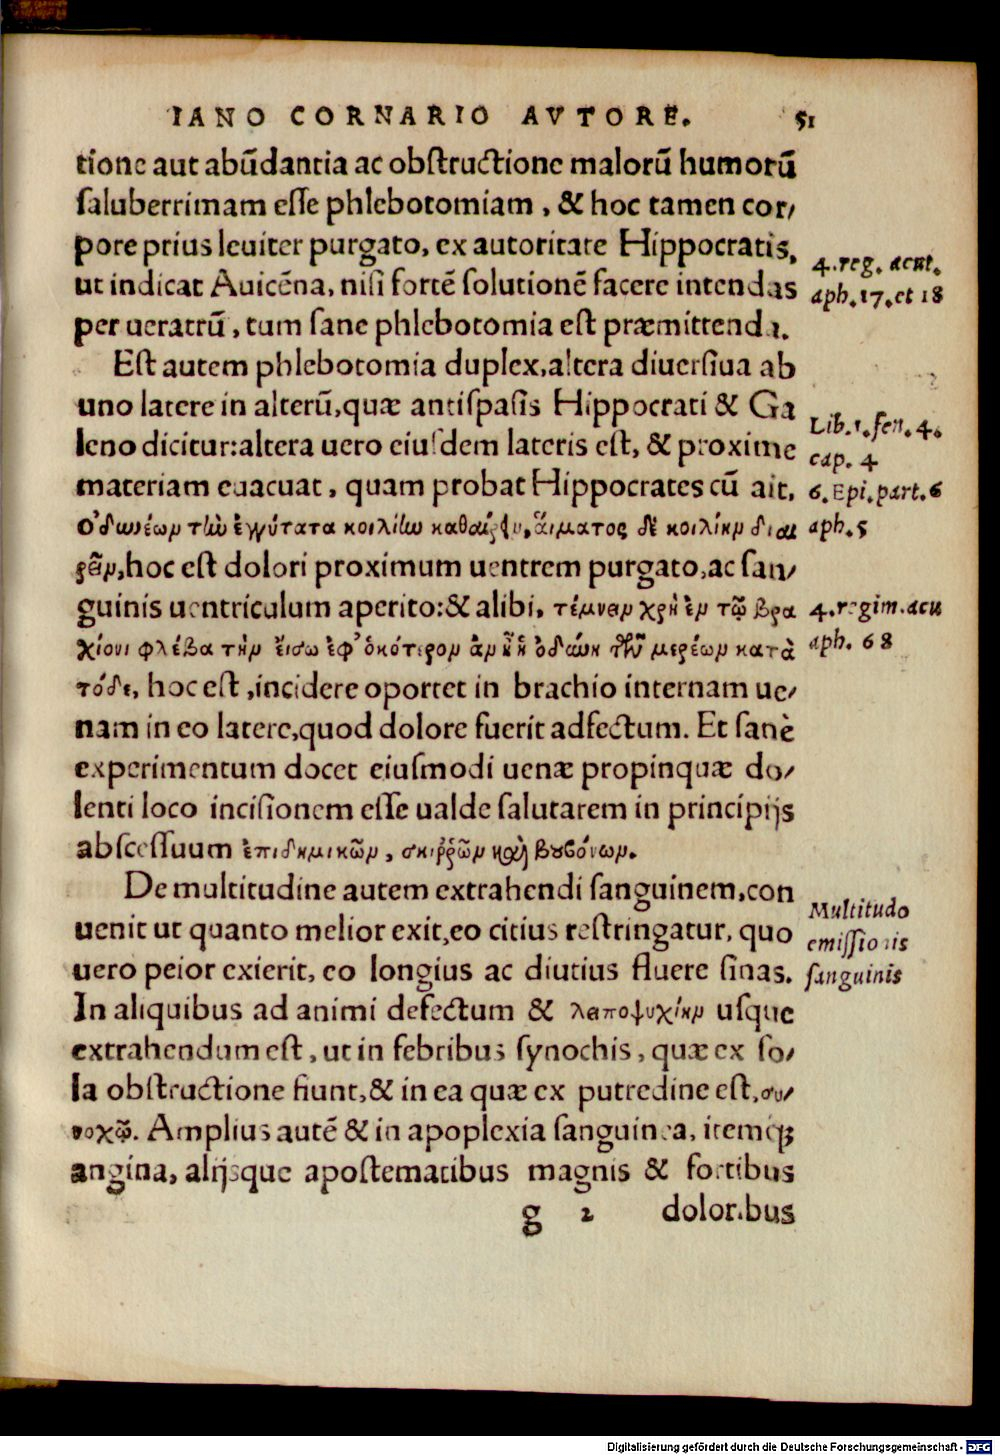 IANO CORNARIO AVTORE. 51
tione aut abũdantia ac obstructione malorũ humorũ
saluberrimam esse phlebotomiam, & hoc tamen cor/
pore prius leuiter purgato, ex autoritate Hippocratis,
4. reg. acut.
ut indicat Auicēna, nisi fortē solutionē facere intendas
aph. 17. et 18
per ueratrũ, tum sane phlebotomia est præmittenda.
Est autem phlebotomia duplex, altera diuersiua ab
uno latere in alterũ, quæ antispasis Hippocrati & Ga
Lib. 1. fen. 4.
leno dicitur: altera uero eiusdem lateris est, & proxime
cap. 4
materiam euacuat, quam probat Hippocrates cũ ait,
6. Epi. part. 6
Οδωνέων τὼ ἐγγύτατα κοιλίω καθαίρειν, αἵματος δὲ κοιλίην διαι
aph. 5
ρεῖν, hoc est dolori proximum uentrem purgato, ac san/
guinis uentriculum aperito: & alibi, τέμνειν χρὴ ἐν τῷ βρα
4. regim. acu
χίονι φλέβα τὴν ἔισω ἐφ’ ὁκότερον ἀν ᾖ ἡ ὀδώνη τῶν μερέων κατὰ
aph. 68
τόδε, hoc est, incidere oportet in brachio internam ue/
nam in eo latere, quod dolore fuerit adfectum. Et sanè
experimentum docet eiusmodi uenæ propinquæ do/
lenti loco incisionem esse ualde salutarem in principijs
abscessuum ἐπιδημικῶν, σκιῤῥῶν καὶ βουβόνων.
De multitudine autem extrahendi sanguinem, con
Multitudo
uenit ut quanto melior exit, eo citius restringatur, quo
emissionis
uero peior exierit, eo longius ac diutius fluere sinas.
sanguinis
In aliquibus ad animi defectum & λειποψυχίην usque
extrahendum est, ut in febribus synochis, quæ ex so/
la obstructione fiunt, & in ea quæ ex putredine est, συ/
νοχῷ. Amplius autē & in apoplexia sanguinea, itemq́;
angina, alijsque apostematibus magnis & fortibus
g 2 doloribus
Digitalisierung gefördert durch die Deutsche Forschungsgemeinschaft - DFG